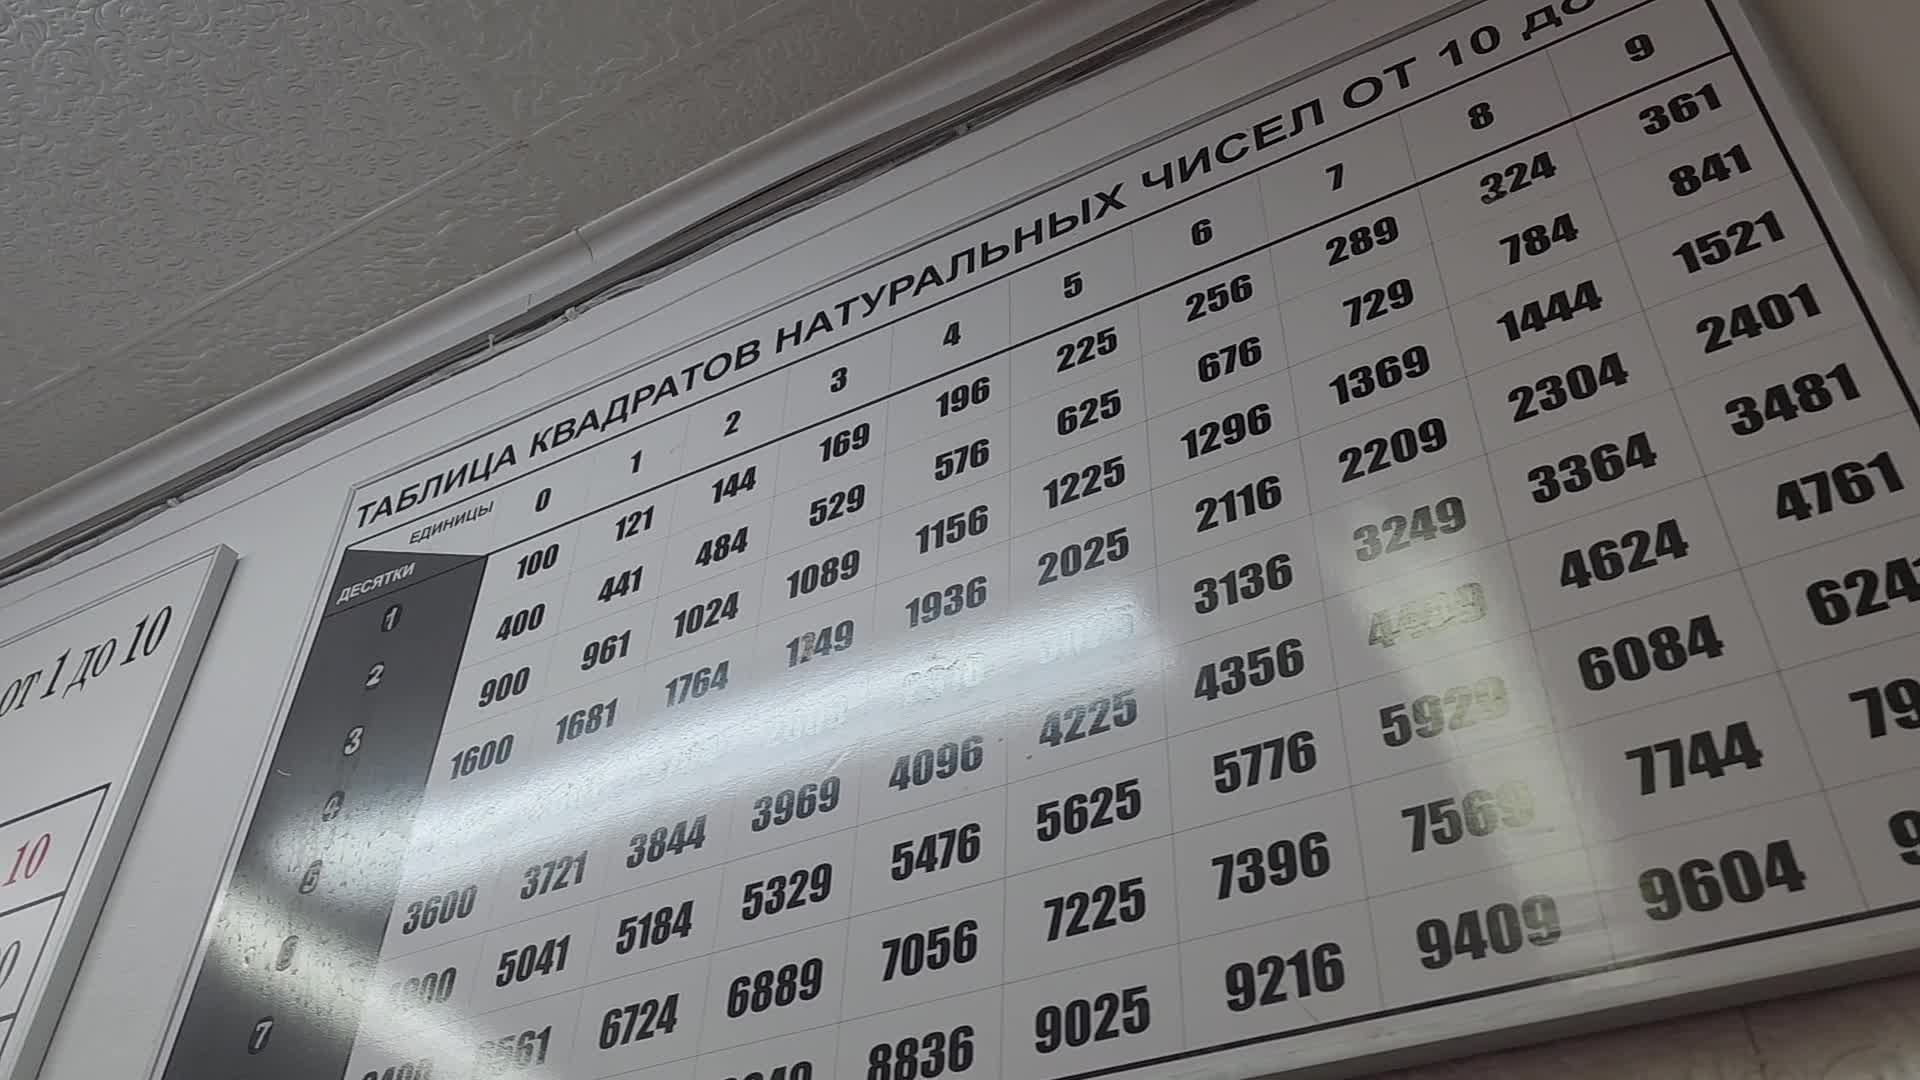 ТАБЛИЦА КВАДРАТОВ НАТУРАЛЬНЫХ ЧИСЕЛ ОТ 10 ДО
ЕДИНИЦЫ 0 1 2 3 4 5 6 7 8 9
ДЕСЯТКИ
1 100 121 144 169 196 225 256 289 324 361
2 400 441 484 529 576 625 676 729 784 841
3 900 961 1024 1089 1156 1225 1296 1369 1444 1521
4 1600 1681 1764 1849 1936 2025 2116 2209 2304 2401
5 3136 3249 3364 3481
6 3600 3721 3844 3969 4096 4225 4356 4489 4624 4761
7 5041 5184 5329 5476 5625 5776 5929 6084
6724 6889 7056 7225 7396 7569 7744
8836 9025 9216 9409 9604
от 1 до 10
10